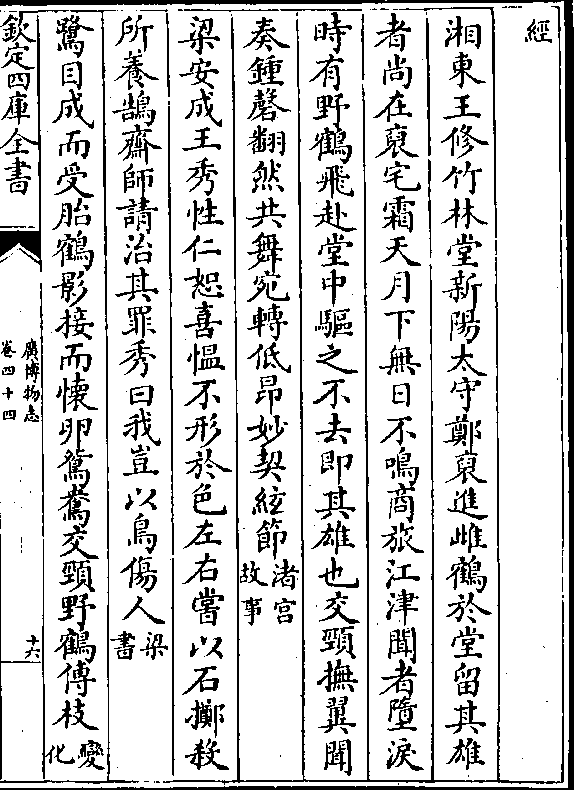 經
湘東王修竹林堂新陽太守鄭裒進雌鶴於堂留其雄
者尚在裒宅霜天月下無日不鳴商旅江津聞者墮淚
時有野鶴飛赴堂中驅之不去即其雄也交頸撫翼聞
奏鍾磬翻然共舞宛轉低昂妙契絃節渚宫故事
梁安成王秀性仁恕喜愠不形於色左右嘗以石擲殺
所養鵠齋師請治其罪秀曰我豈以鳥傷人梁書
鷺目成而受胎鶴影接而懷卵鴛鴦交頸野鶴傳枝變化
欽定四庫全書
廣博物志
卷四十四
十六